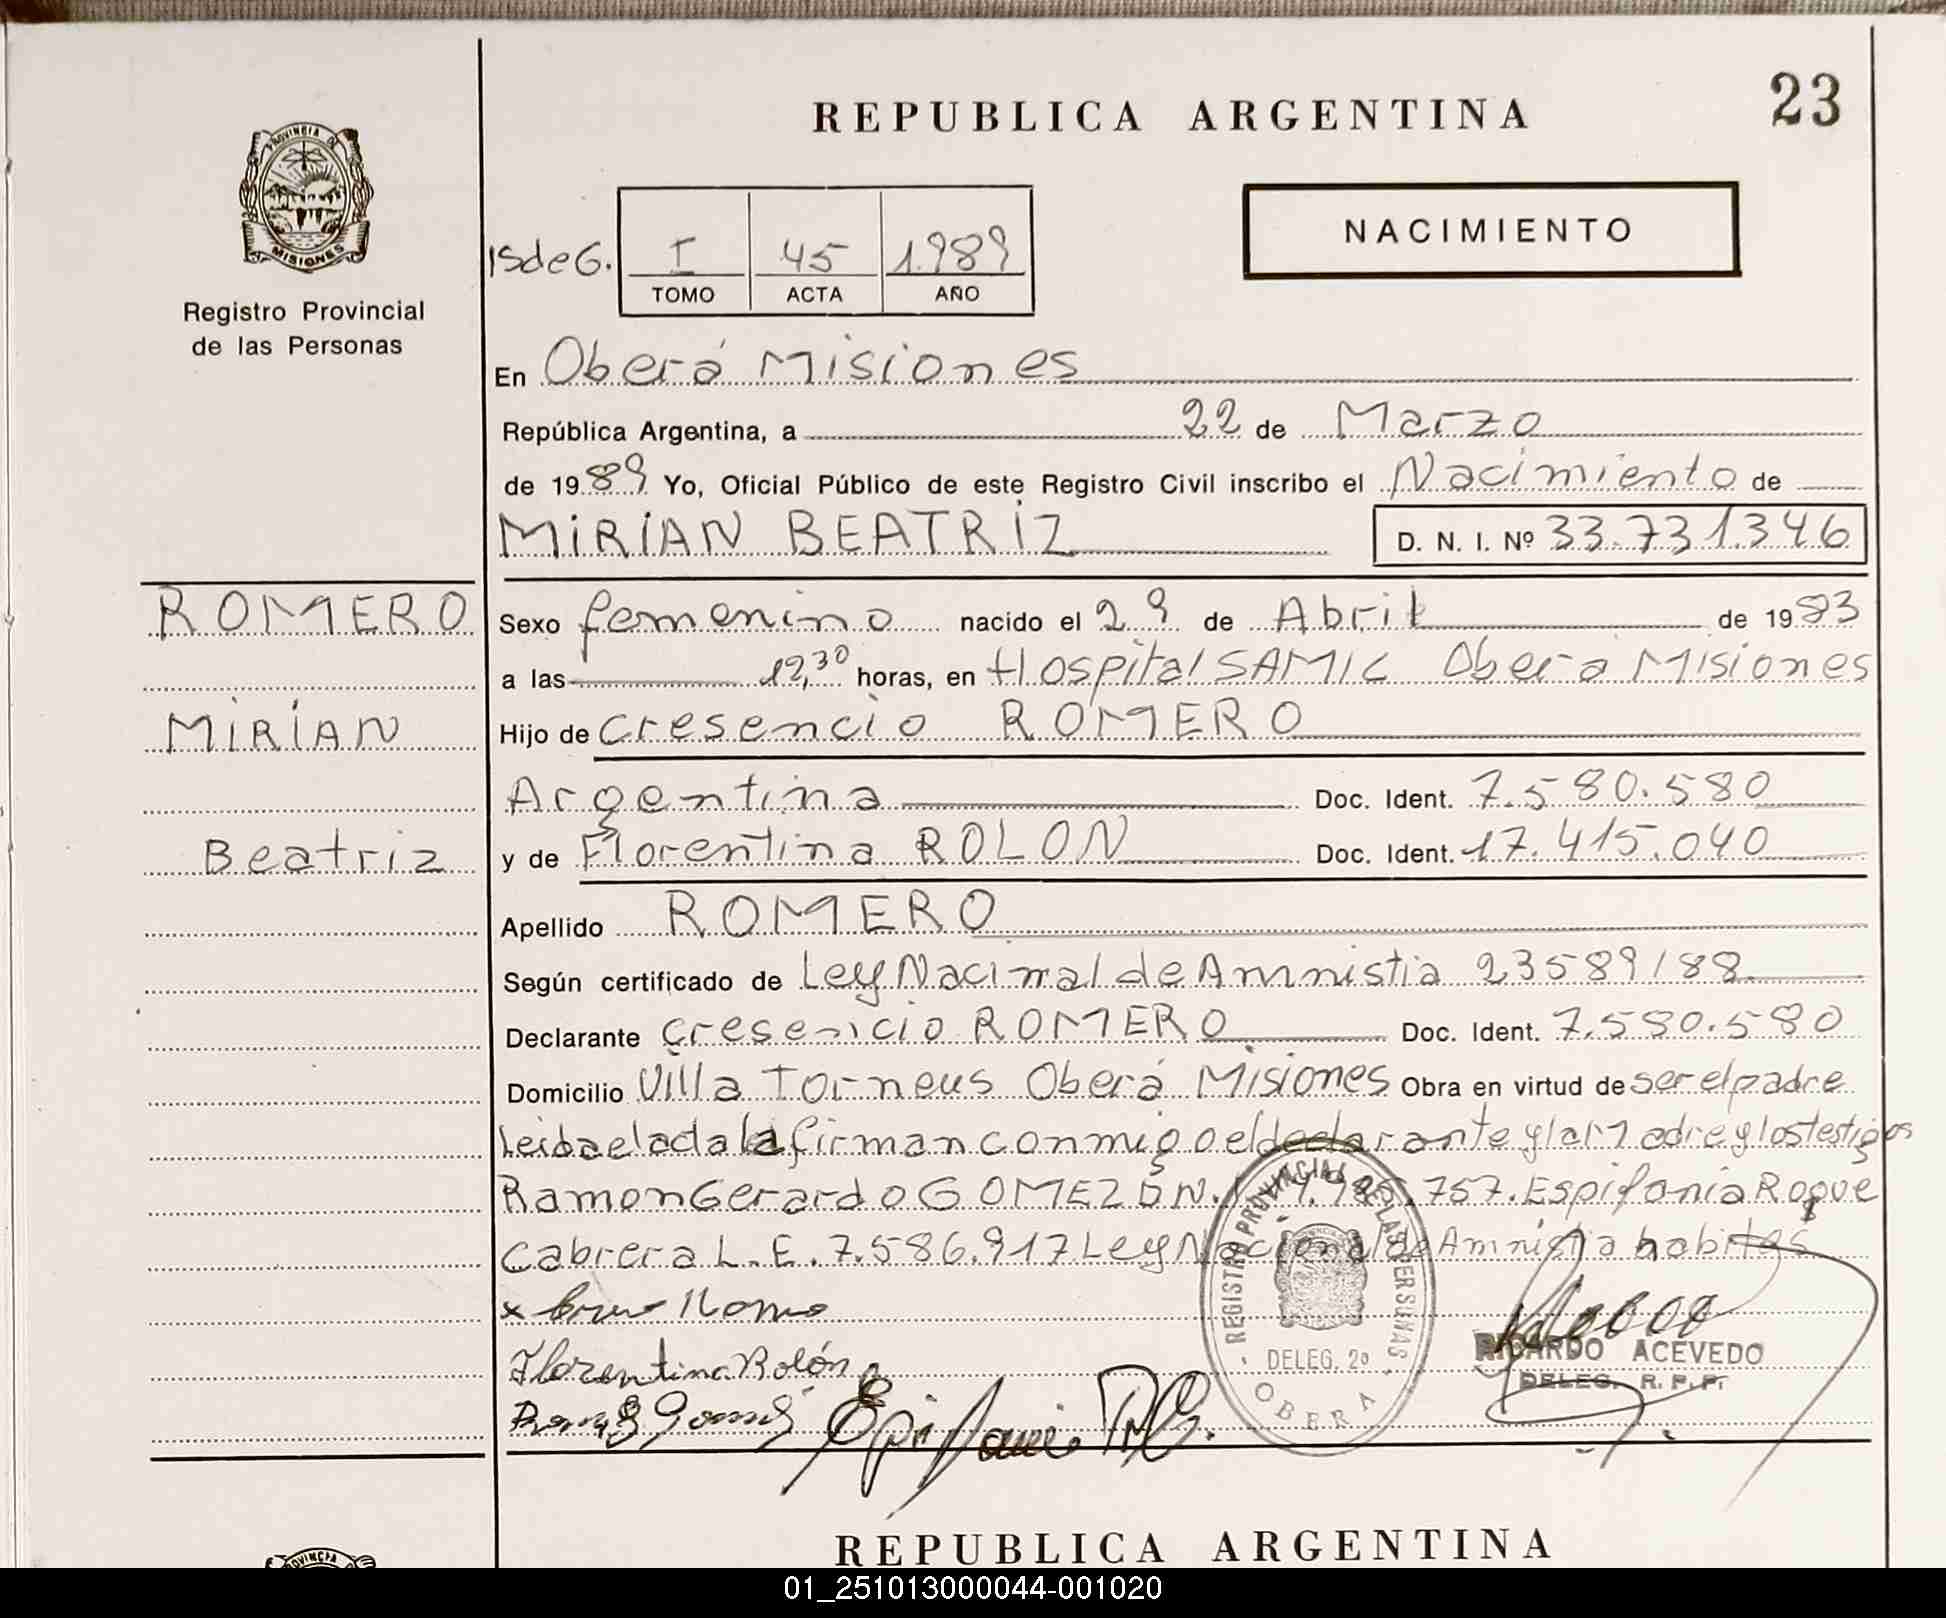 REPUBLICA ARGENTINA
23
PROVINCIA DE
MISIONES
Registro Provincial
de las Personas
NACIMIENTO
ISdeG.
I 45 1.989
TOMO ACTA AÑO
En Oberá Misiones
República Argentina, a 22 de Marzo
de 1989 Yo, Oficial Público de este Registro Civil inscribo el Nacimiento de
MIRIAN BEATRIZ D. N. I. Nº 33.731.346
ROMERO
MIRIAN
Beatriz
Sexo femenino nacido el 29 de Abril de 1983
a las 12,30 horas, en Hospital SAMIC Oberá Misiones
Hijo de Cresencio ROMERO
Argentina Doc. Ident. 7.580.580
y de Florentina ROLON Doc. Ident. 17.415.040
Apellido ROMERO
Según certificado de Ley Nacional de Amnistia 23589/88
Declarante Cresencio ROMERO Doc. Ident. 7.580.580
Domicilio Villa Torneus Oberá Misiones Obra en virtud de ser el padre
Leida el acta la firman conmigo el declarante y la Madre y los testigos
Ramon Gerardo GOMEZ DN.I 757. Espifania Roque
Cabrera L.E. 7.586.917 Ley Nacional de Amnistia habites
x Romero
Florentina Rolón
REGISTRO PROVINCIAL DE LAS PERSONAS
DELEG. 2º
OBERA
RICARDO ACEVEDO
DELEG. R. P. P.
REPUBLICA ARGENTINA
PROVINCIA
01_251013000044-001020